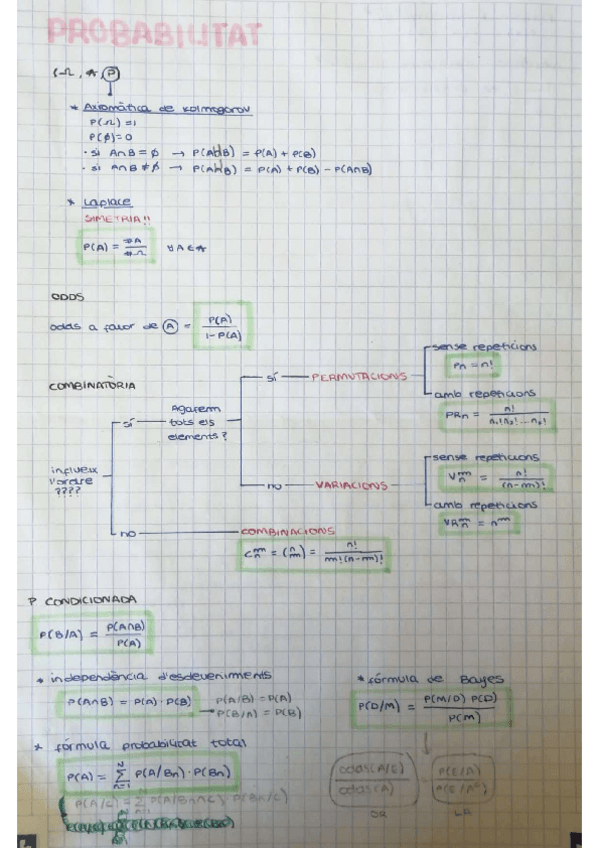 PROBABILITAT
(Ω, A, P)
* Axiomàtica de Kolmogorov
P(Ω) = 1
P(∅) = 0
· si A∩B = ∅ → P(A∪B) = P(A) + P(B)
· si A∩B ≠ ∅ → P(A∪B) = P(A) + P(B) - P(A∩B)
* Laplace
SIMETRIA!!
P(A) = #A / #Ω ∀A∈A
ODDS
odds a favor de A = P(A) / 1-P(A)
COMBINATÒRIA
influeix l'ordre ????
sí
Agarem tots els elements?
sí
PERMUTACIONS
sense repeticions
Pn = n!
amb repeticions
PRn = n! / n₁!n₂!...nₖ!
no
VARIACIONS
sense repeticions
Vₙᵐ = n! / (n-m)!
amb repeticions
VRₙᵐ = nᵐ
no
COMBINACIONS
Cₙᵐ = (n m) = n! / m!(n-m)!
P CONDICIONADA
P(B/A) = P(A∩B) / P(A)
* independència d'esdeveniments
P(A∩B) = P(A)·P(B) → P(A/B) = P(A)
P(B/A) = P(B)
* fórmula de Bayes
P(D/M) = P(M/D) P(D) / P(M)
* fórmula probabilitat total
P(A) = Σ n=1 N P(A/Bn)·P(Bn)
P(A/C) = Σ n=1 N P(A/Bn∩C)·P(Bn/C)
odds(A/E) / odds(A) = P(E/A) / P(E/Aᶜ)
OR LR